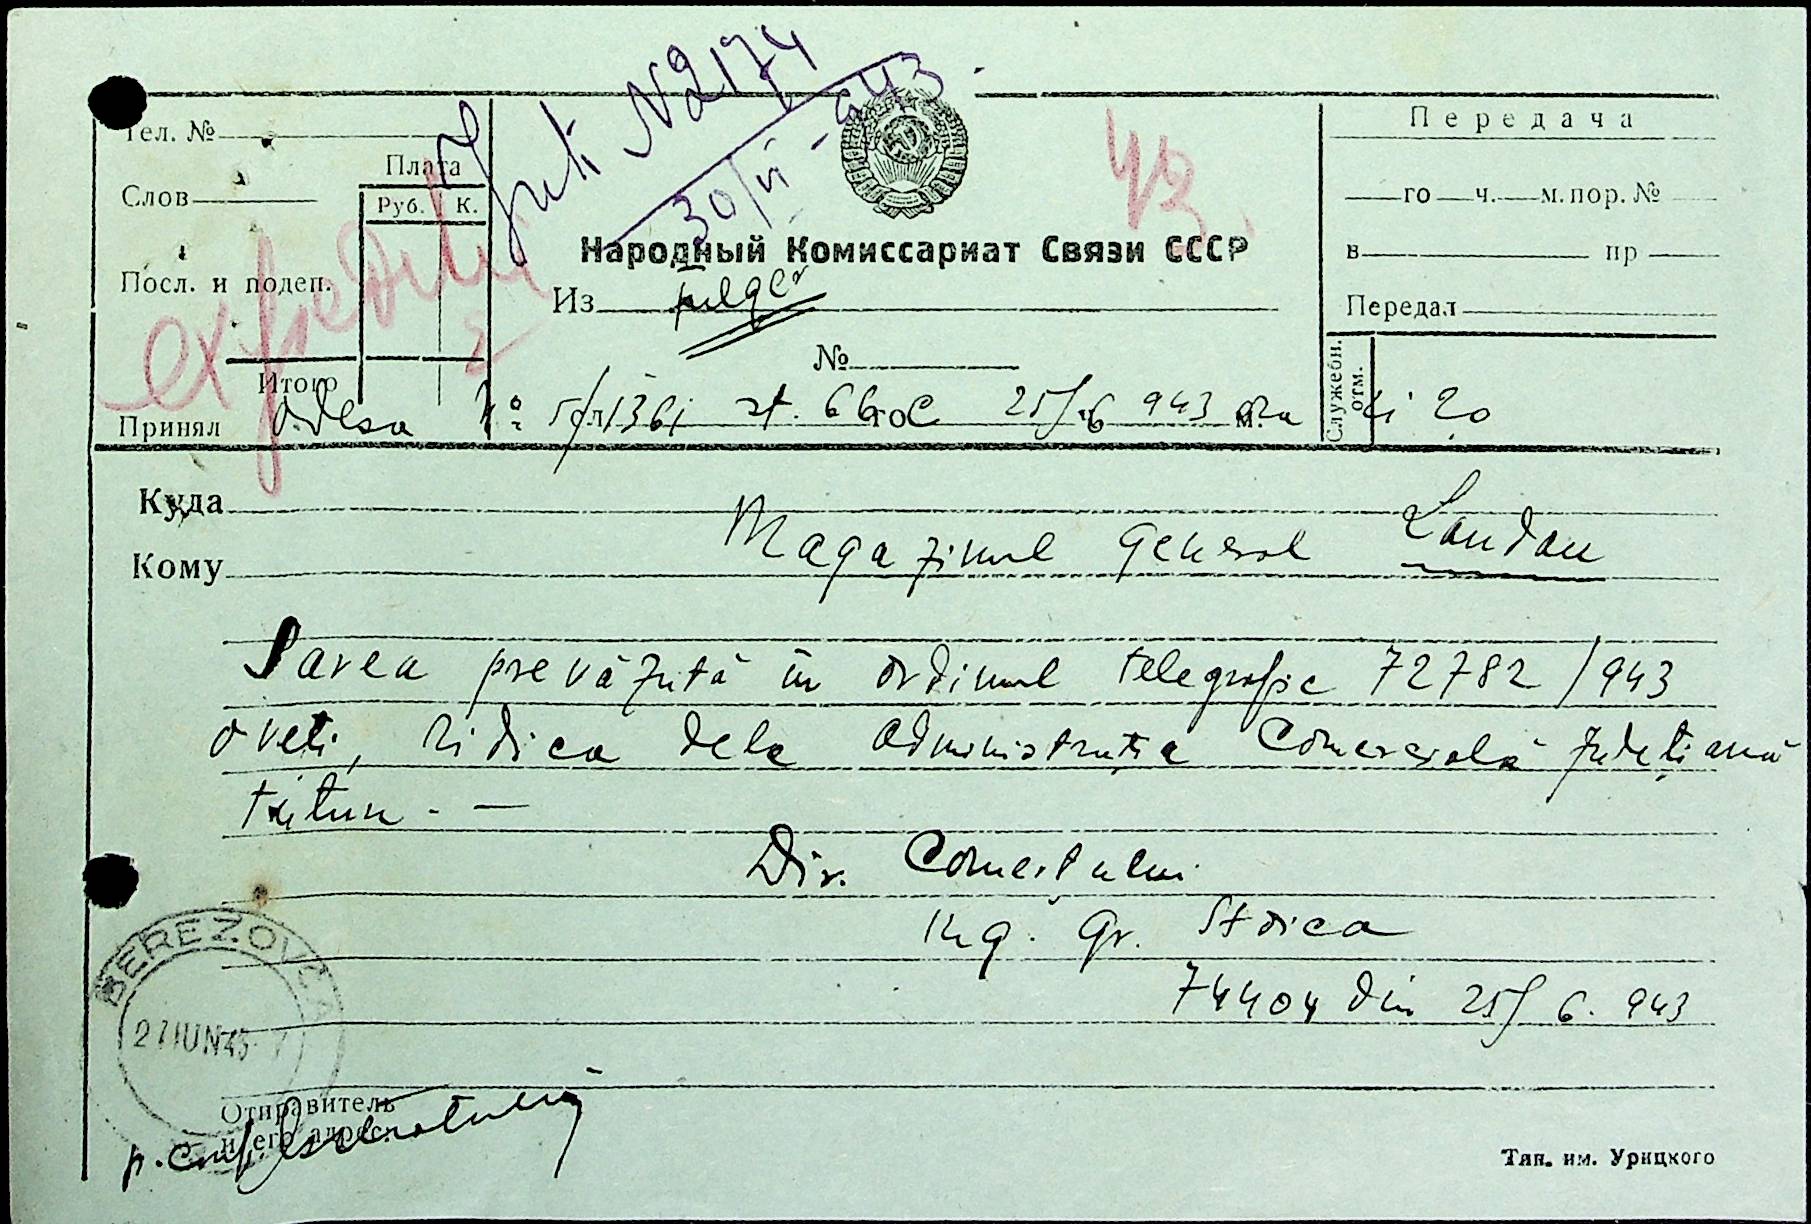 Int. N 2174
30/VI-943
43
Тел. №
Слов
Плата
Руб. К.
Посл. и подеп.
Итого
Принял
Народный Комиссариат Связи СССР
Из fulger
№
го м.
Передача
го ч. м. пор. №
в пр
Передал
Служебн. отм.
Odesa No: 1361 66 25/6 943 ora 20
Куда
Кому
Magazinul General Landau
Sarea prevăzută în ordinul telegrafic 72782/943
o veți, ridica dela administrația Comercială județiană
Dir. Comerțului
Ing. Gr. Stoica
74404 din 25/6. 943
BEREZOVCA
27 IUN 43
Отправитель
и его адрес.
p. conf.
Тип. им. Урицкого